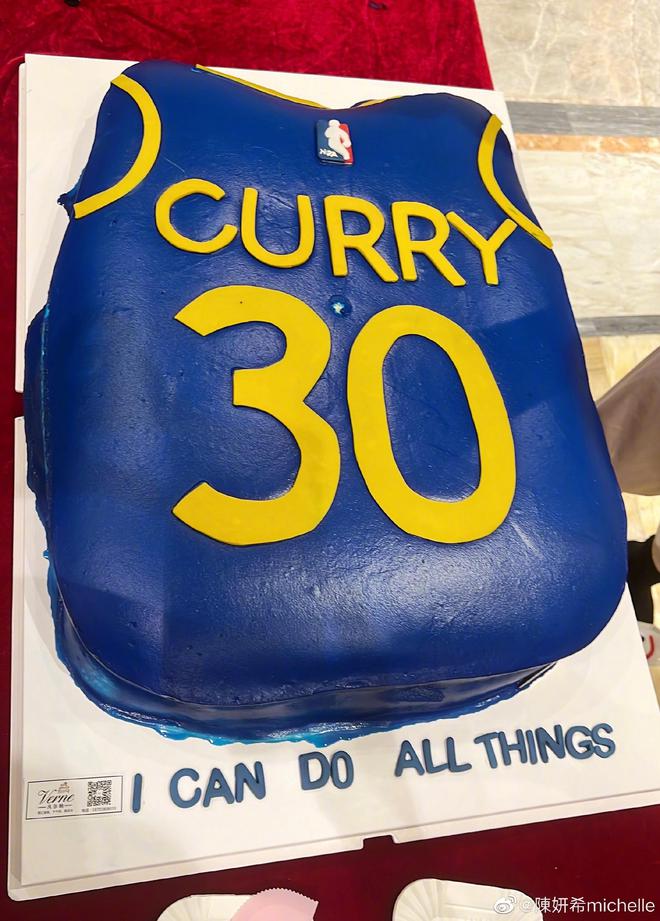 NBA
CURRY
30
I CAN DO ALL THINGS
Verne
@陳妍希michelle